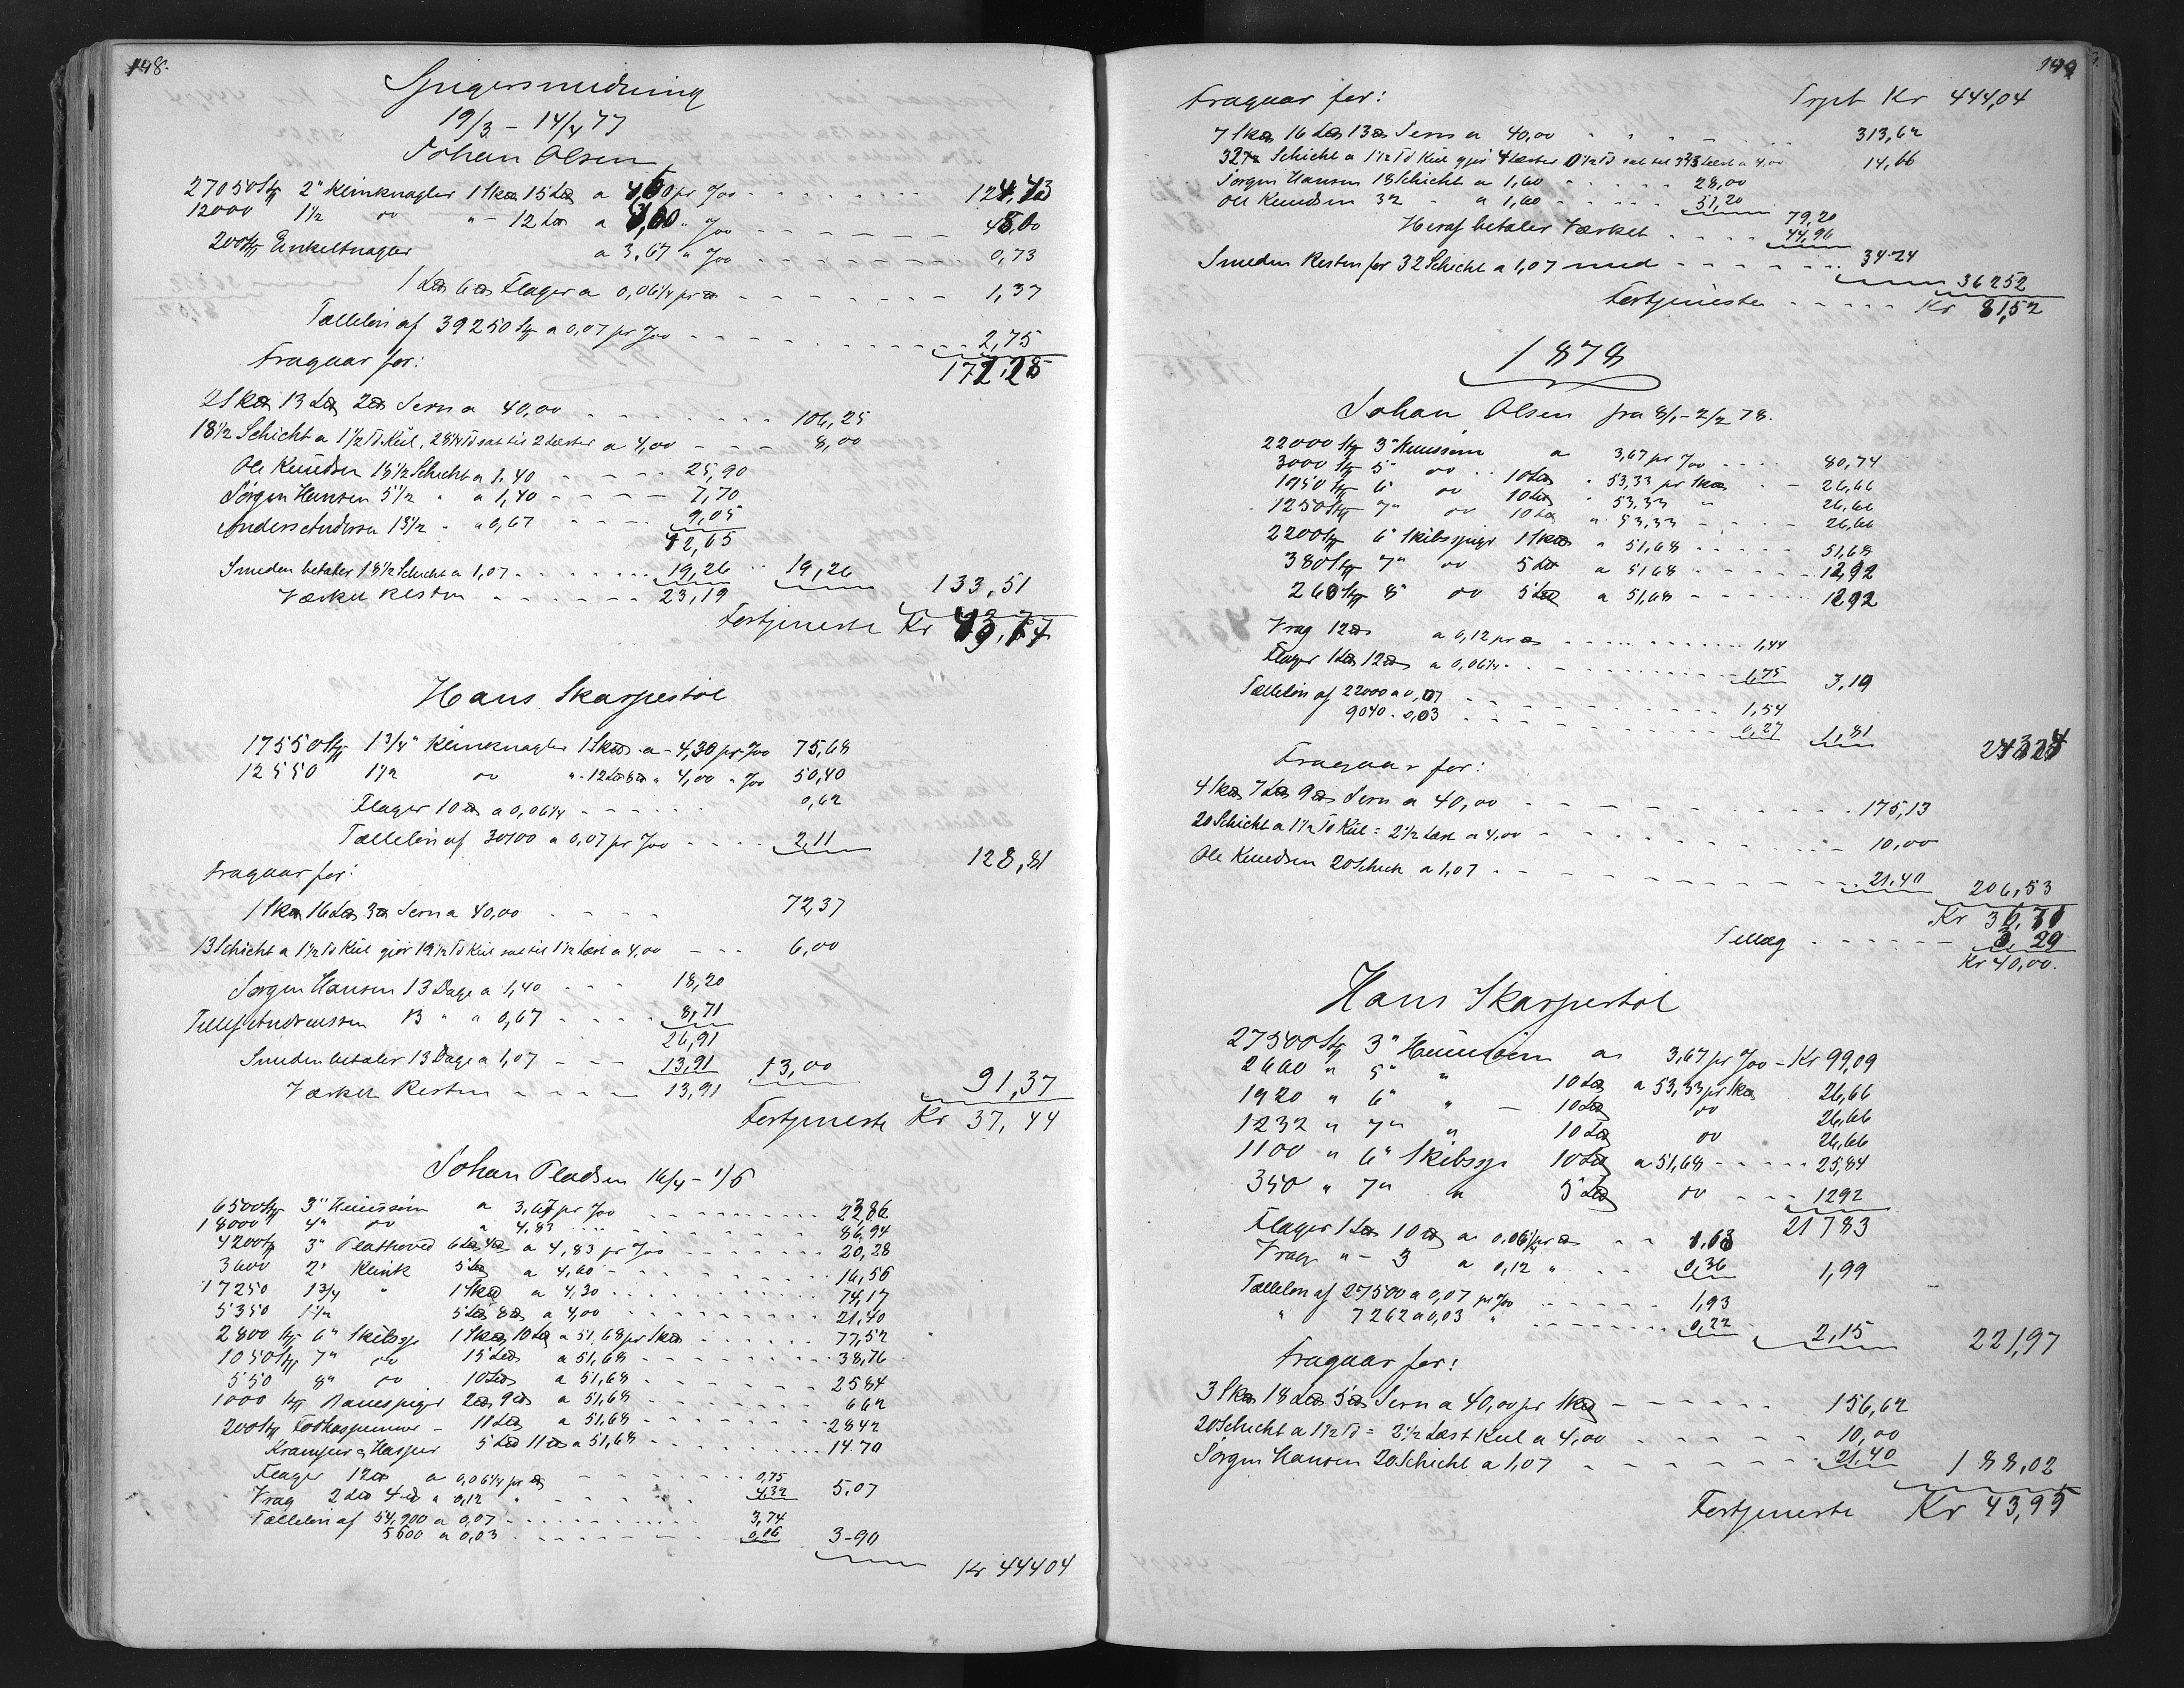 148.
Spigersmedning
19/3 - 14/4 77
Johan Olsen
27050 Stk 2" Klinknagler 1 Sk℔ 15 L℔ a 4,60 pr %00 124,43
12000 1½ do " - 12 L℔ a 4,00 " %00 48,00
200 Stk Enkeltnagler a 3,67 " %00 0,73
1 L℔ 6 ℔ Flager a 0,06¼ pr ℔ 1,37
Tællelön af 39250 Stk a 0,07 pr %00 2,75
172,28
Fragaar for:
2 Sk℔ 13 L℔ 2 ℔ Jern a 40,00 106,25
18½ Schicht a 1½ Td Kul, 28¼ Td sat til 2 Læster a 4,00 8,00
Ole Knudsen 18½ Schicht a 1.40 25,90
Jörgen Hansen 5½ " a 1,40 7,70
Anders Andersen 13½ " a 0,67 9,05
42,65
Smeden betaler 18½ Schicht a 1,07 19,26 19,26
133,51
Værket Resten 23,19
Fortjeneste Kr
Hans Skarpestöl
17550 Stk 1¾" Klinknagler 1 Sk℔ a 4,30 pr %00 75,68
12550 1½ do " 12 L℔ 8 ℔ " 4,00 " %00 50,40
Flager 10 ℔ a 0,06¼ 0,62
Tællelön af 30100 a 0,07 pr %00 2,11
128,81
Fragaar for:
1 Sk℔ 16 L℔ 3 ℔ Jern a 40,00 72,37
13 Schicht a 1½ Td Kul gjör 19½ Td Kul sat til 1½ Læst a 4,00 6,00
Jörgen Hansen 13 Dage a 1,40 18,20
Tellef Andreassen 13 " a 0,67 8,71
26,91
Smeden betaler 13 Dage a 1,07 13,91 13,00
91,37
Værket Resten 13,91
Fortjeneste Kr 37,44
Johan Pladsen 16/4 - 1/6
6500 Stk 3" Huussöm a 3,67 pr %00 23,86
18000 " 4" do a 4,83 86,94
4200 Stk 3" Plathoved 6 L℔ 4 ℔ a 4,83 pr %00 20,28
3600 2" Klink 5 L℔ a 4,60 16,56
17250 1¾ " 1 Sk℔ a 4,30 74,17
5350 1½ 5 L℔ 8 ℔ a 4,00 21,40
2800 Stk 6" Skibssp 1 Sk℔ 10 L℔ a 51,68 pr Sk℔ 77,52
1050 Stk 7" do 15 L℔ a 51,68 38,76
550 8" do 10 L℔ a 51,68 2584
1000 Stk Bauespiger 2 L℔ 9 ℔ a 51,68 662
200 Stk 11 L℔ a 51,68 2842
Kramper & Hasper 5 L℔ 11 ℔ a 51,68 14.70
Flager 12 ℔ a 0,06¼ pr ℔ 0,75
Vrag 2 L℔ 4 ℔ a 0,12 " 4,32 5.07
Tællelön af 54,900 a 0,07 3,74
5600 a 0,03 0,16 3-90
Kr 44404
149
Fragaar for: Trpt Kr 444,04
7 Sk℔ 16 L℔ 13 ℔ Jern a 40,00 313,62
32½ Schicht a 1½ Td Kul gjör 4 Læster 0½ Td sat til 3⅔ Læst a 4,00 14,66
Jörgen Hansen 18 Schicht a 1,60 28,00
Ole Knudsen 32 " a 1,60 51,20
79,20
Heraf betaler Værket 44,96
Smeden Resten for 32 Schicht a 1,07 med 34-24
36252
Fortjeneste Kr 81,52
1878
Johan Olsen fra 8/1 - 2/2 78.
22000 Stk 3" Huussöm a 3,67 pr %00 80,74
3000 Stk 5" do 10 L℔ " 53,33 pr Sk℔ 26,66
1950 Stk 6" do 10 L℔ " 53,33 " 26,66
1250 Stk 7" do 10 L℔ " 53,33 26,66
2200 Stk 6" Skibsspiger 1 Sk℔ " 51,68 51,68
380 Stk 7" do 5 L℔ a 5168 12,92
260 Stk 8" do 5 L℔ a 51,68 1292
Vrag 12 ℔ a 0,12 pr ℔ 1,44
Flager 1 L℔ 12 ℔ a 0,06¼ 1,75 3,19
Tællelön af 22000 a 0,07 1,54
9040 " 0,03 0,27 1,81
Fragaar for:
4 Sk℔ 7 L℔ 9 ℔ Jern a 40,00 175,13
20 Schicht a 1½ Td Kul = 2½ Læst a 4,00 10,00
Ole Knudsen 20 Schich a 1,07 21,40 206,53
Kr 36,71
Tillæg 3,29
Kr 40,00.
Hans Skarpestöl
27500 Stk 3" Huussöm a 3,67 pr %00 - Kr 99,09
2660 " 5" " 10 L℔ a 53,33 pr Sk℔ 26,66
1920 " 6" " - 10 L℔ do 26,66
1232 " 7" " 10 L℔ do 26,66
1100 " 6" Skibssp 10 L℔ a 51,68 25,84
350 " 7" " 5 L℔ do 1292
21783
Flager 1 L℔ 10 ℔ a 0,06¼ pr ℔ 1.63
Vrag " - 3 a 0,12 " 0,36 1,99
Tællelön af 27500 a 0,07 pr %00 1,93
" 7262 a 0,03 " 0,22 2,15 221,97
Fragaar for:
3 Sk℔ 18 L℔ 5 ℔ Jern a 40,00 pr Sk℔ 156,62
20 Schicht a 1½ Td = 2½ Læst Kul a 4,00 10,00
Jörgen Hansen 20 Schicht a 1,07 21,40 188,02
Fortjeneste Kr 43,95